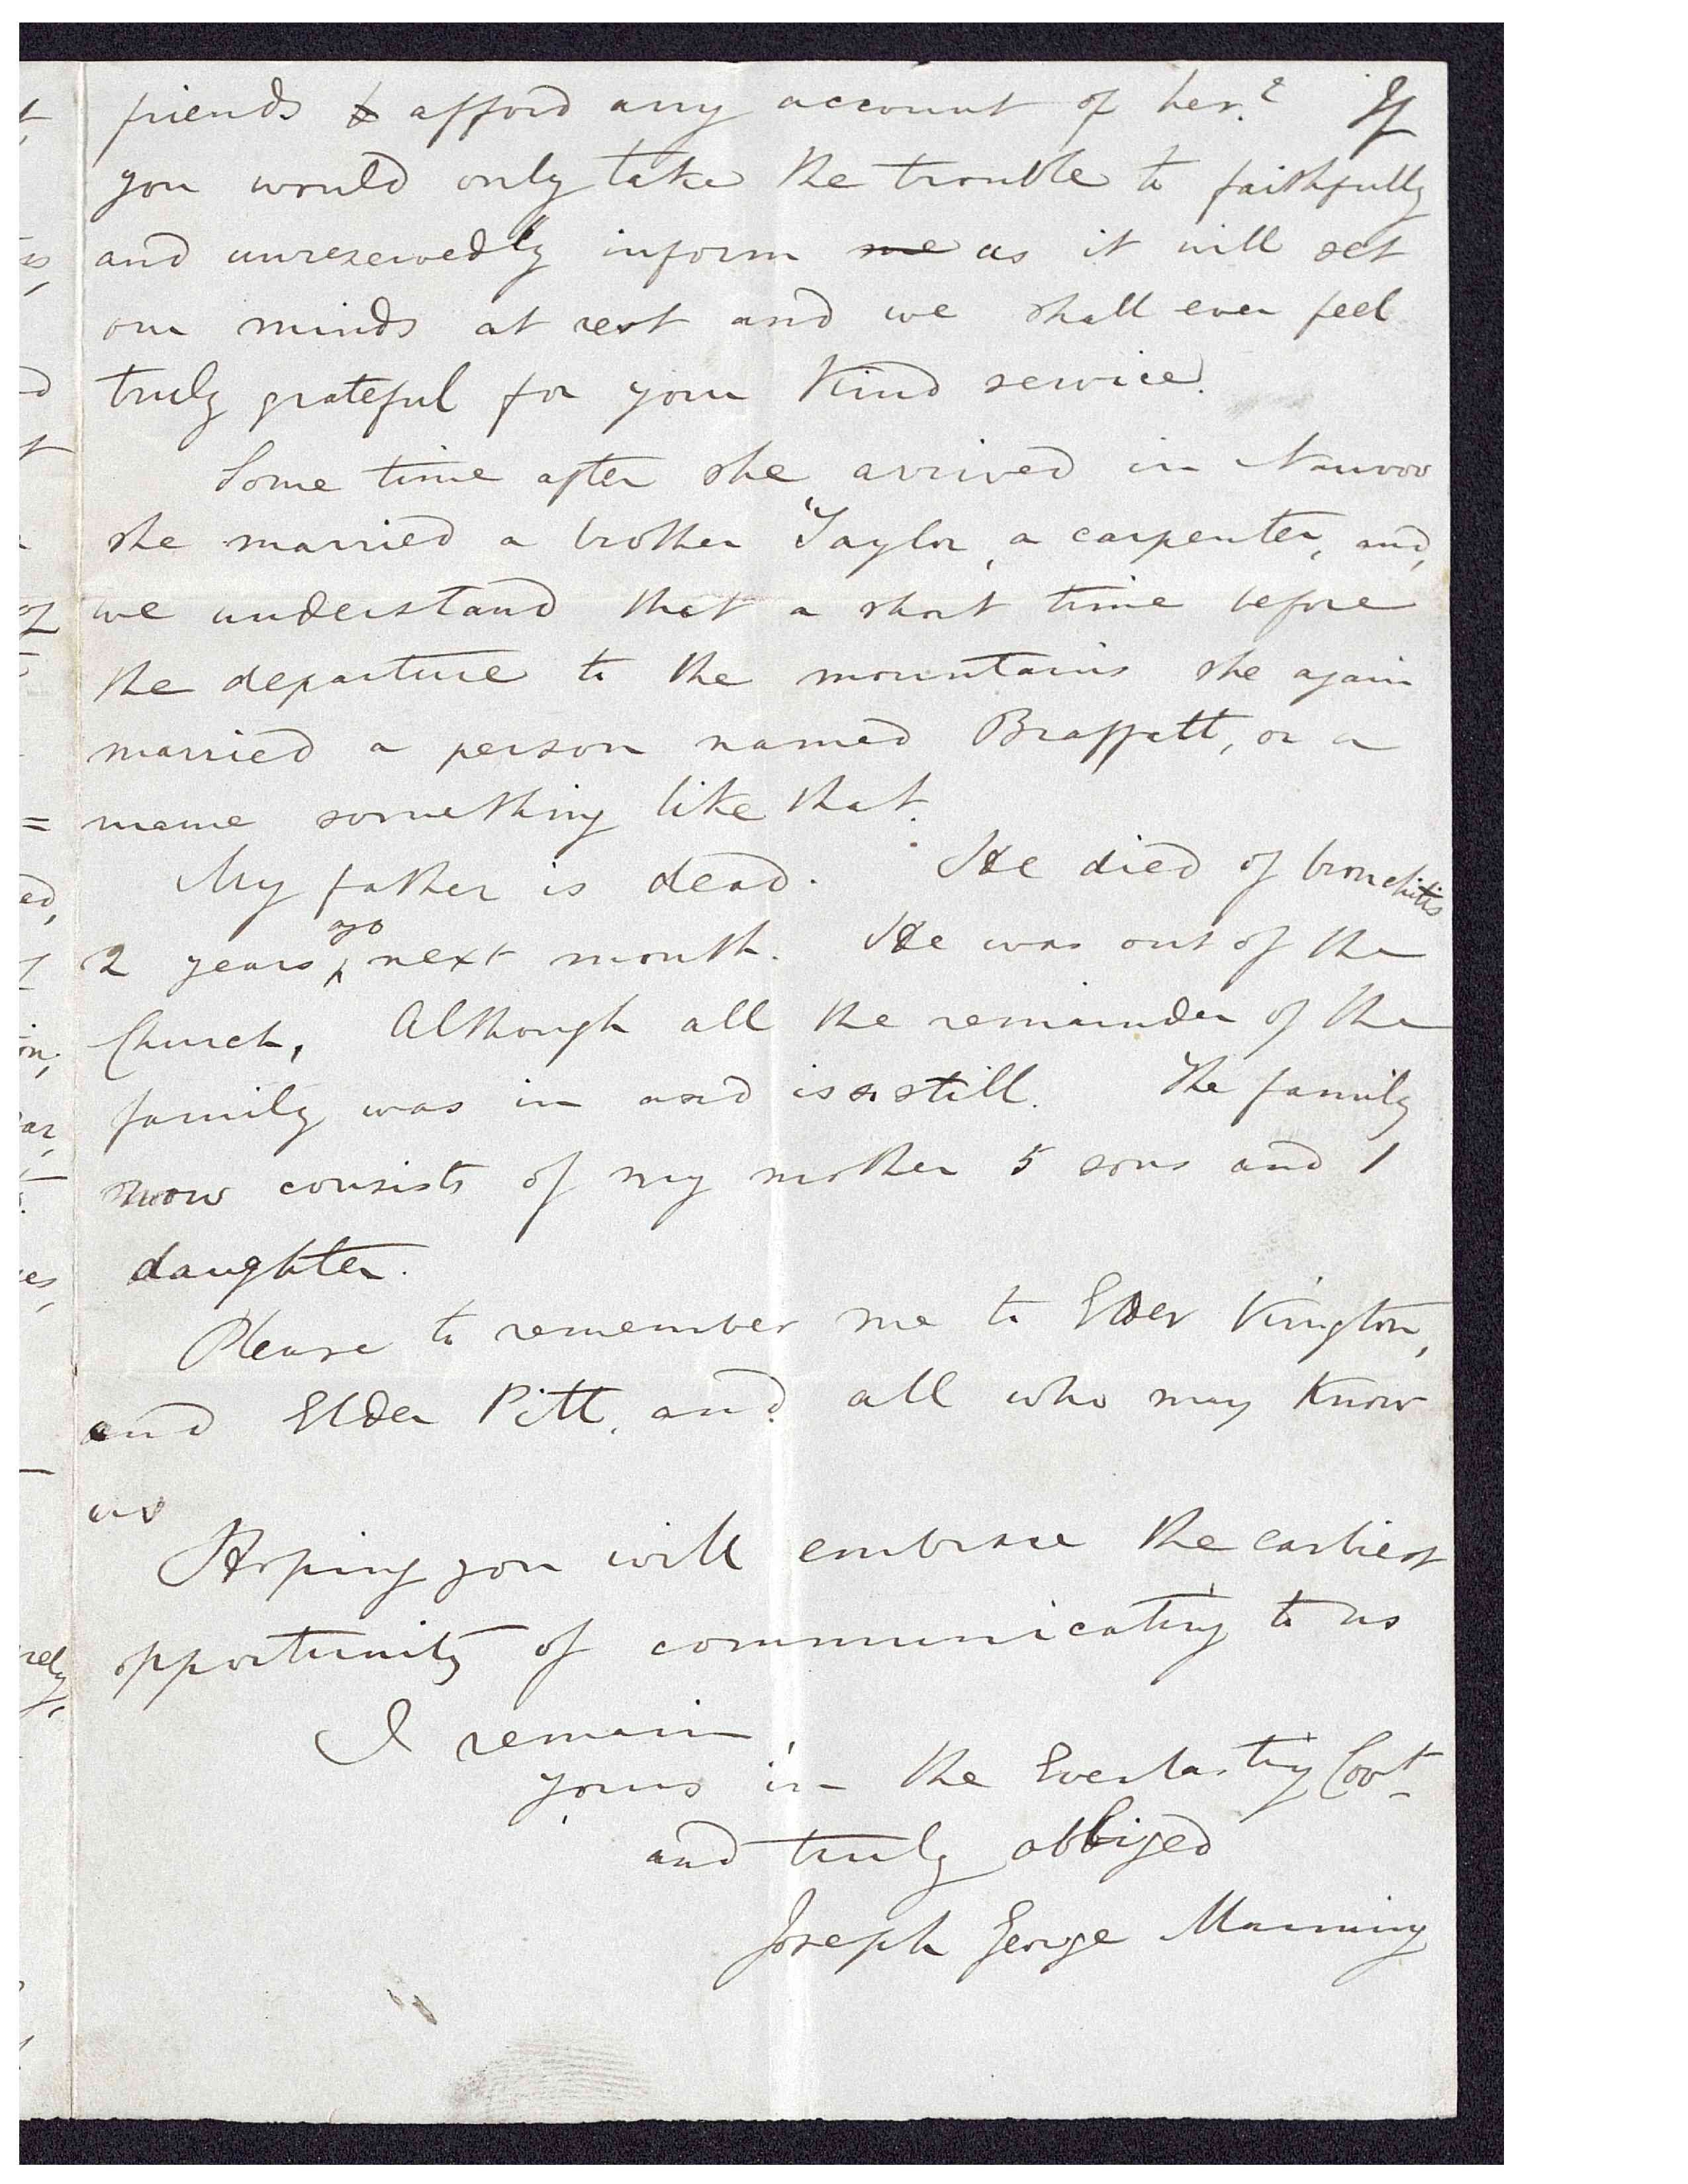 friends to afford any account of her? If
you would only take the trouble to faithfully
and unreservedly inform me us it will set
our minds at rest and we shall ever feel
truly grateful for your kind service.
Some time after she arrived in Nauvoo
she married a brother Taylor, a carpenter, and,
we understand that a short time before
the departure to the mountains she again
married a person named Braffatt, or a
name something like that.
My father is dead. He died of bronchitis
2 years ago next month. He was out of the
Church, Although all the remainder of the
family was in and is still. The family
now consists of my mother 5 sons and 1
daughter.
Please to remember me to Elder Kington,
and Elder Pitt, and all who may know
us
Hoping you will embrace the earliest
opportunity of communicating to us
I remain
yours in the Everlasting Covt
and truly obliged
Joseph George Manning